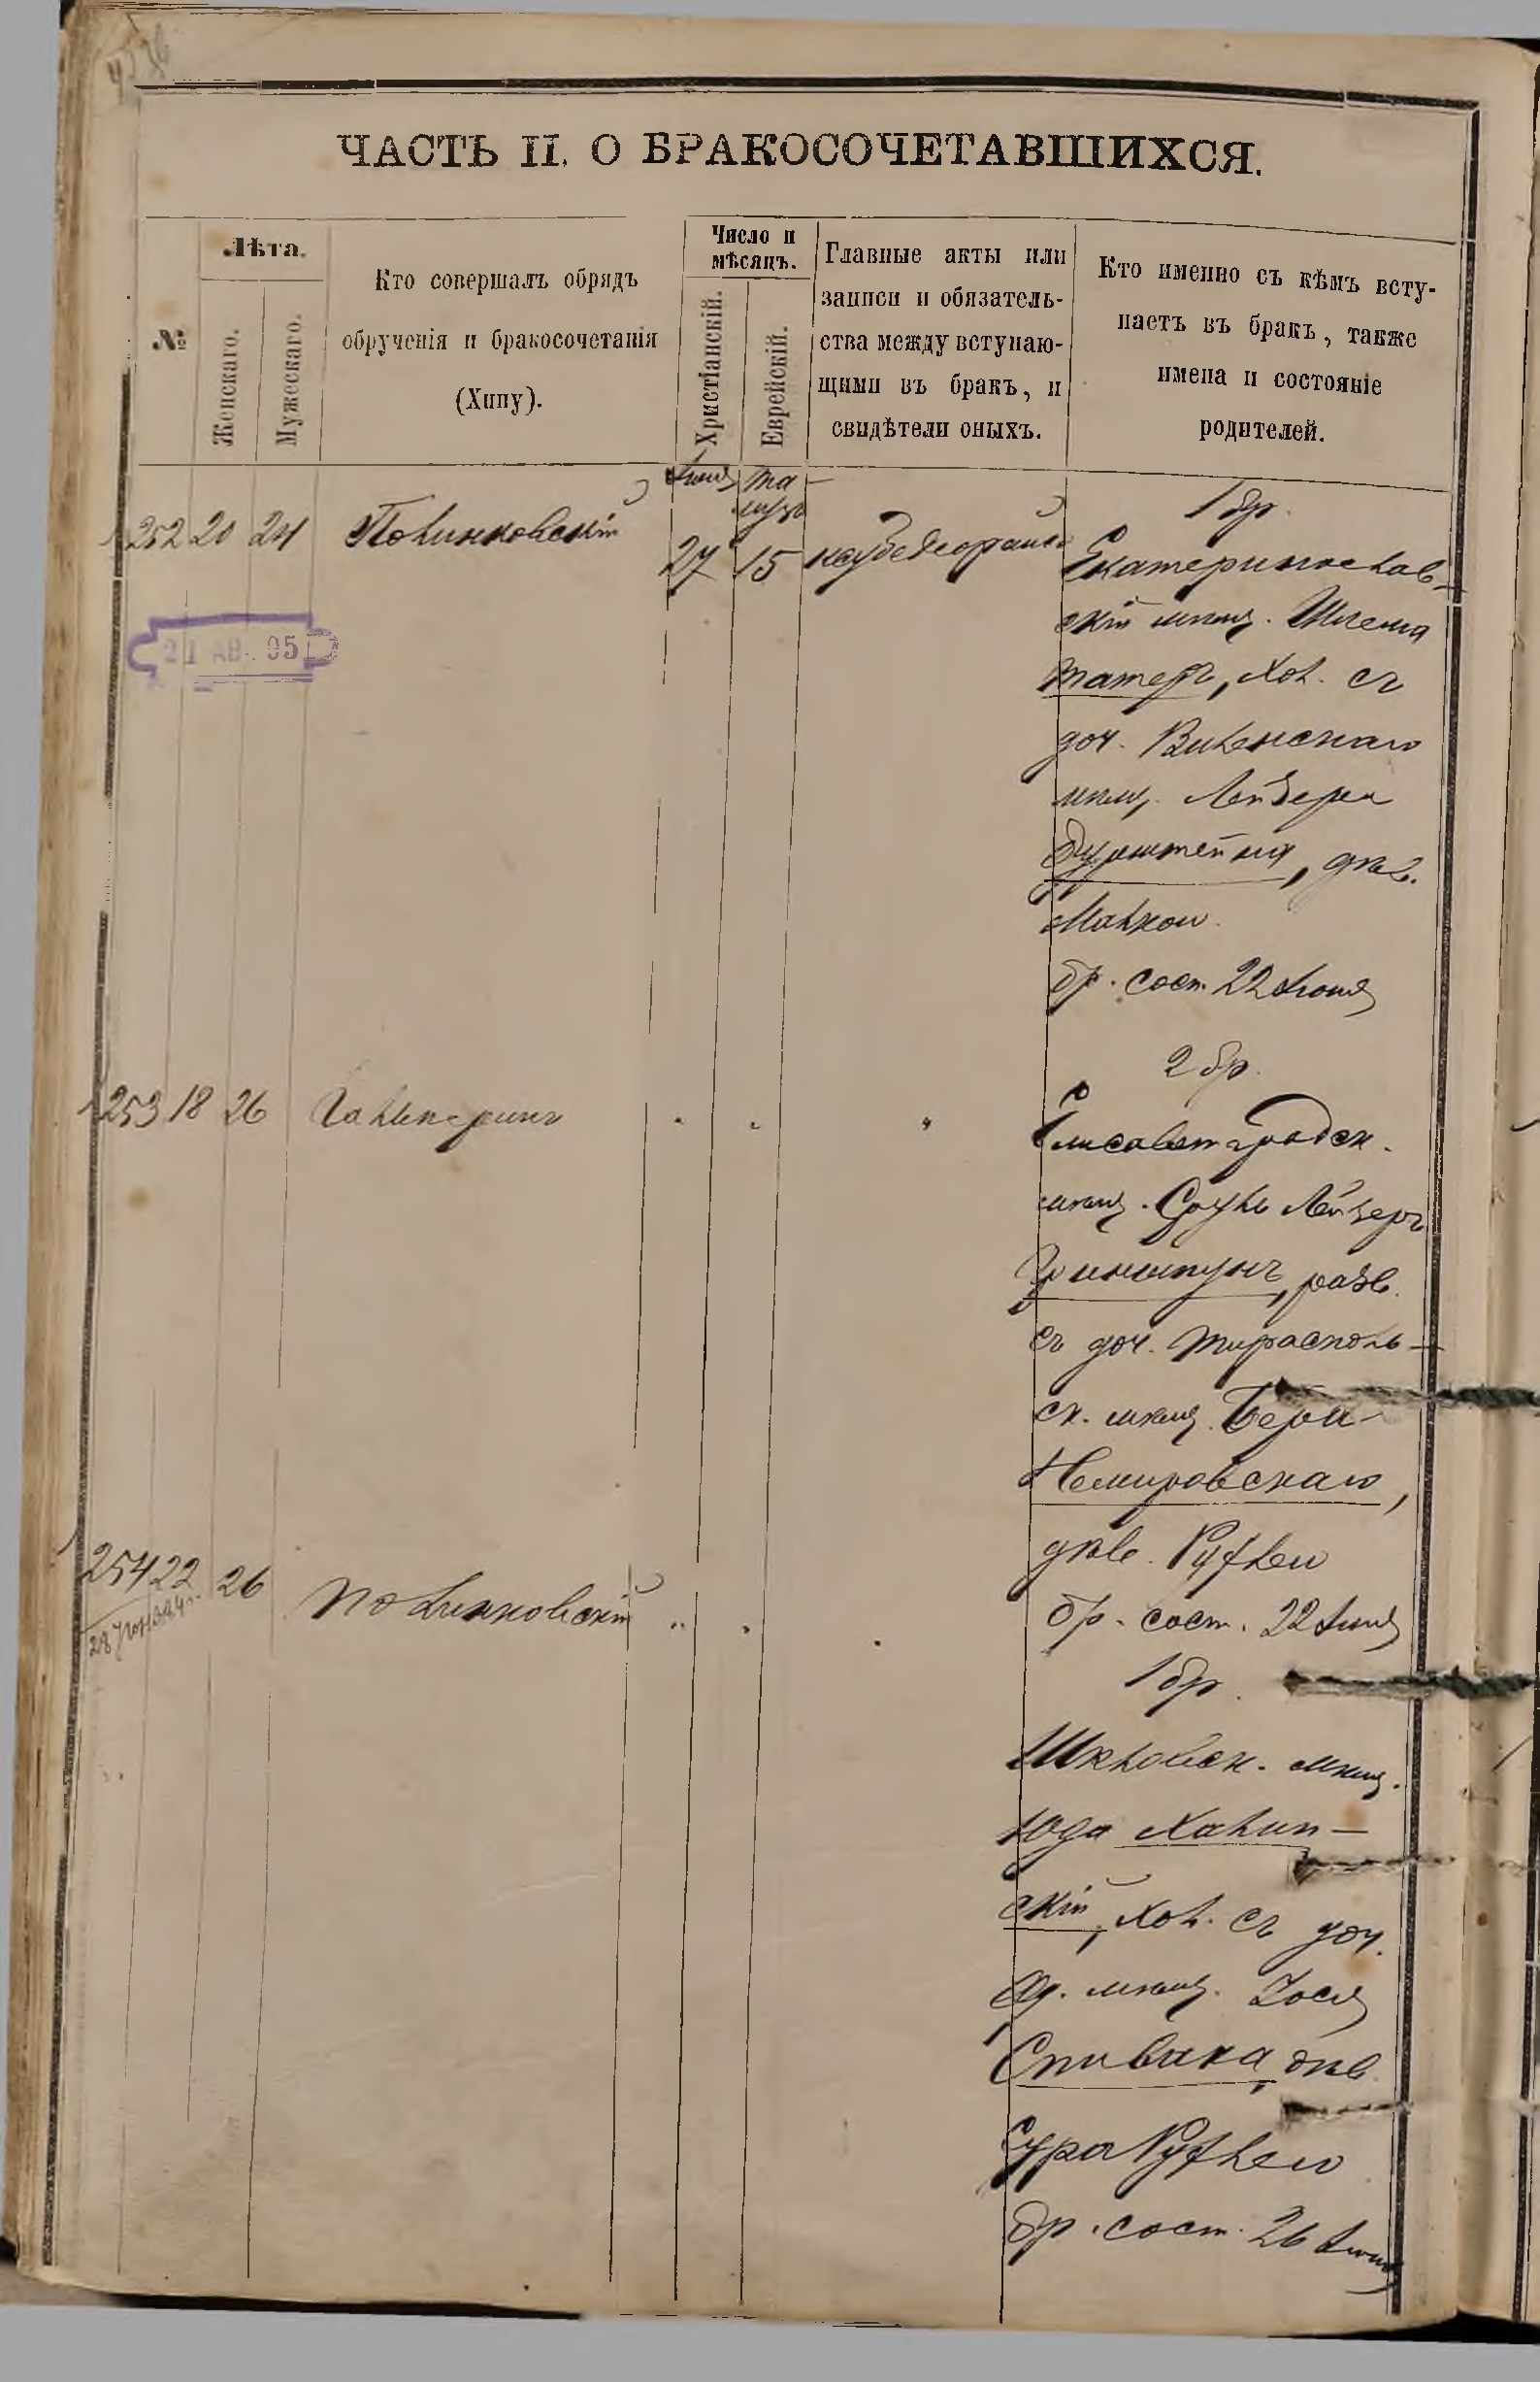 ЧАСТЬ II. О БРАКОСОЧЕТАВШИХСЯ.
№
Лѣта.
Женскаго.
Мужескаго.
Кто совершалъ обрядъ
обрученія и бракосочетанія
(Хипу).
Число и
мѣсяцъ.
Христіанскій.
Еврейскій.
Главные акты или
записи и обязатель-
ства между вступаю-
щими въ бракъ, и
свидѣтели оныхъ.
Кто именно съ кѣмъ всту-
паетъ въ бракъ, также
имена и состояніе
родителей.
252 20 24 Полинковскій
Іюня
27
Та-
музъ
15
1 бр.
Екатеринослав-
скій мѣщ. Шлема
Татеръ, хол. съ
доч. Виленскаго
мѣщ. Лейзера
дѣв.
Малкою.
бр. сост. 22 Іюня
21 АВ. 95
253 18 26 Гальперинъ
2 бр.
Елисаветградск.
мѣщ. Сруль Лейзеръ
Гринштунъ, разв.
съ доч. Тирасполь-
ск. мѣщ. Бера
Немировскаго,
дѣв. Рухлею
бр. сост. 22 Іюня
254 22 26 Полинковскій
1 бр.
Шкловск. мѣщ.
Юда Халип-
скій, хол. съ доч.
Од. мѣщ. Зося
Спивака, дѣв.
Сура Рухлею
бр. сост. 26 Іюня